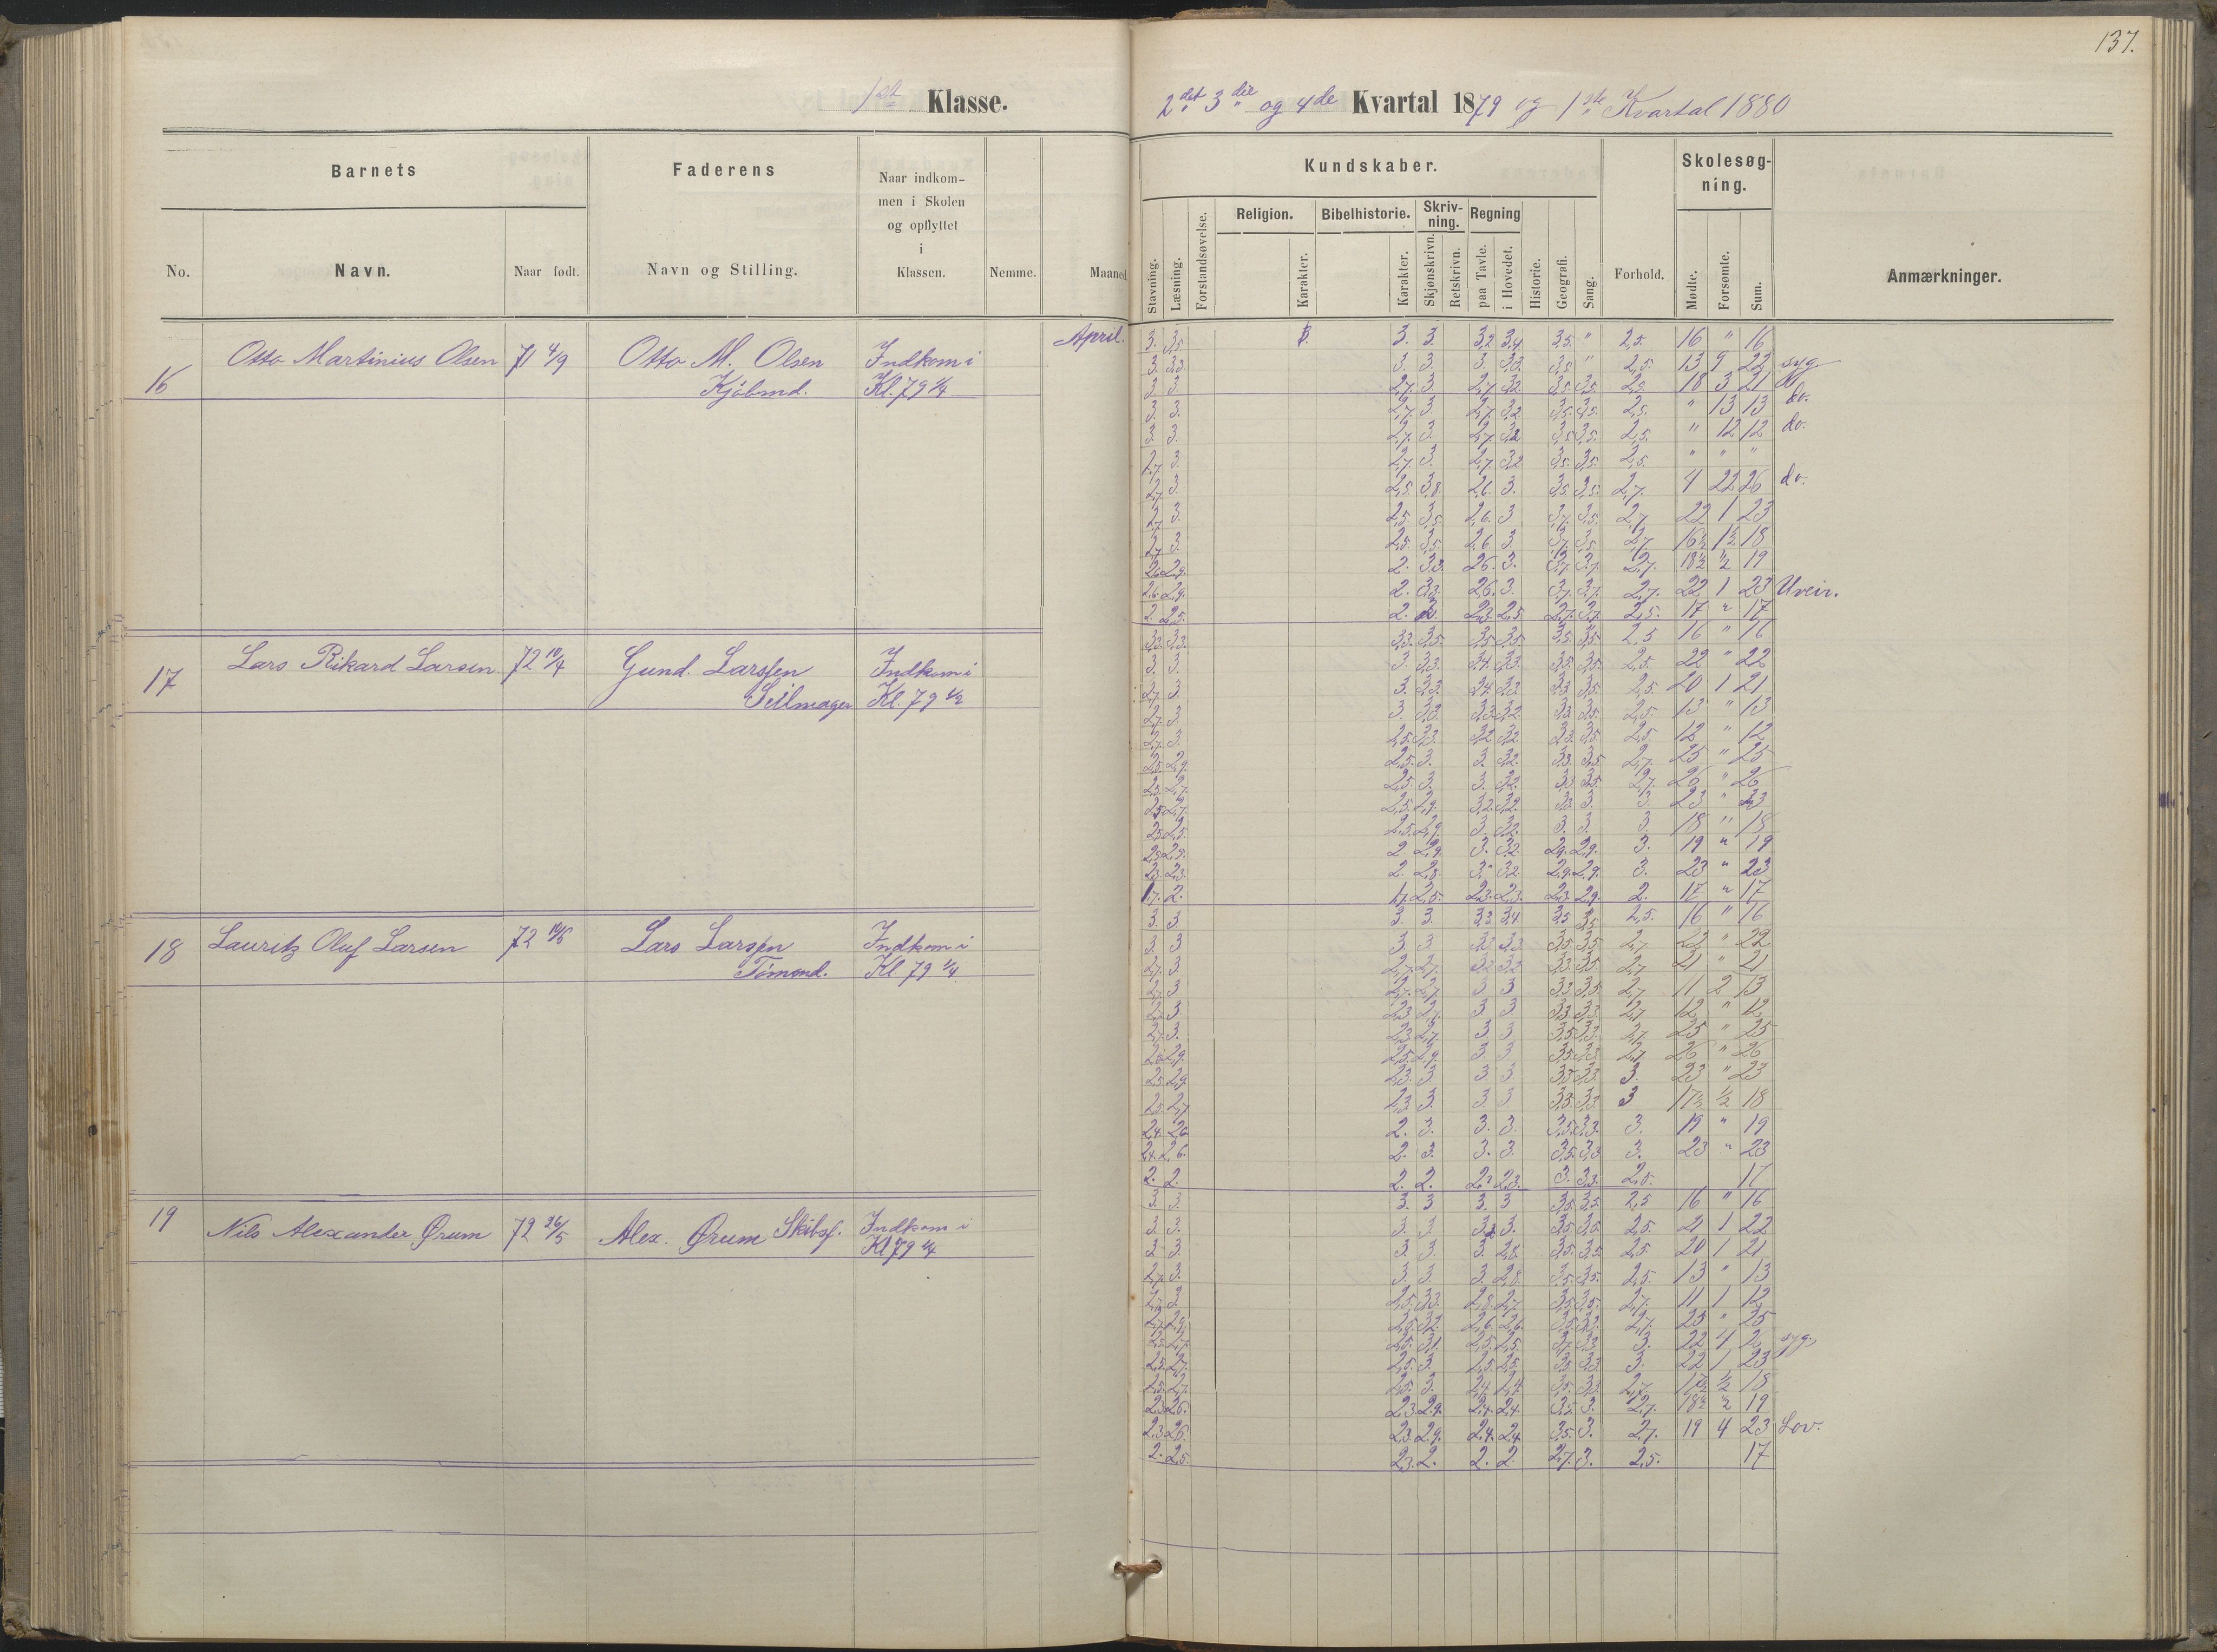 137.
1ste Klasse.
2det 3die og 4de Kvartal 1879 og 1ste Kvartal 1880
Barnets
Faderens
Naar indkom-
men i Skolen
og opflyttet
i
Klassen.
No.
Navn.
Naar født.
Navn og Stilling.
Nemme.
Maaned
Kundskaber.
Skolesøg-
ning.
Stavning.
Læsning.
Forstandsøvelse.
Religion.
Karakter.
Bibelhistorie.
Karakter.
Skriv-
ning.
Skjønskrivn.
Retskrivn.
Regning
paa Tavle.
i Hovedet.
Historie.
Geografi.
Sang.
Forhold.
Mødte.
Forsømte.
Sum.
Anmærkninger.
April.
16 Otto Martinius Olsen 71 4/9 Otto M. Olsen Indkom i
Kjøbmd. Kl. 79 1/4
3. 3,5 3. 3. 3,2 3,4 3,5. " 2,5. 16 " 16
3. 3,3 3. 3. 3 3,3 3,5 " 2,5. 13 9 22 syg
3. 3. 2,7. 3 2,7 3,2 3,5 3,5 2,5 18 3 21 do.
3. 3. 2,7. 3. 2,7. 3,2 3,5. 3,5. 2,5. " 13 13 do.
3. 3. 2,7. 3. 2,7 3,2 3,5 3,5. 2,5. " 12 12 do.
2,7. 3. 2,7. 3. 2,7. 3,2 3,5. 3,5. 2,5. " " "
2,7. 3. 2,5. 3,8. 2,6. 3. 3,5 3,5. 2,7. 4 22 26 do.
2,7 3. 2,5. 3,5. 2,6. 3 3,7. 3,5. 2,7 22 1 23
2,7 3. 2,5. 3,5. 2,6. 3. 3,7. 3,5 2,7 16½ 1½ 18
2,6 2,9. 2. 3,3. 2,6. 3. 3,7 3,7. 2,7. 18½ ½ 19
2,6. 2,9. 2. 3,3. 2,6. 3. 3,7. 3,7. 2,7. 22 1 23 Uveir.
2. 2,5. 2. 2,3. 2,5 2,7. 3,7. 2,5. 17 " 17
17 Lars Rikard Larsen 72 10/4 Gund. Larssen Indkom i
Seilmager Kl. 79 1/2
3,3. 3,3. 3,3. 3,5. 3,5 3,5. 3,5. 3,5 2,5 16 " 16
3. 3. 3 3,3. 3,4. 3,3. 3,5. 3,5. 2,5. 22 " 22
2,7. 3. 3. 3,3. 3,4. 3,3 3,3 3,5. 2,5. 20 1 21
2,7. 3. 3. 3,3. 3,3. 3,2. 3,3 3,5. 2,5. 13 " 13
2,7. 3. 2,5. 3,3. 3,2 3,2. 3,3. 3,5. 2,5. 12 " 12
2,5. 2,9. 2,5. 3. 3. 3,2. 3,3. 3,5. 2,7. 25 " 25
2,3. 2,7. 2,5. 3. 3. 3,2. 3,3 3,5. 2,7. 26 " 26
2,5 2,7. 2,5. 2,9. 3,2. 3,2. 3,3. 3. 3. 23 " 23
2,5. 2,5. 2,5. 2,9. 3 3,2. 3. 3. 3. 18 " 18
2,3. 2,3. 2. 2,9. 3. 3,2 2,9. 2,9. 3. 19 " 19
2,3. 2,3. 2. 2,8. 3. 3,2 2,9. 2,9. 3. 23 " 23
1,7. 2. 1,7. 2,5. 2,3. 2,3. 2,3. 2,9. 2. 17 " 17
18 Lauritz Oluf Larsen 72 Lars Larssen Indkom i
Tømmd. Kl 79 1/4
3. 3. 3. 3. 3,3 3,4 3,5 3,5 2,5. 16 " 16
3. 3 3. 3 3,3 3,3 3,5. 3,5. 2,7 22 " 22
2,7. 3 2,7. 2,7. 3,2 3,2 3,3. 3,5. 2,7 21 " 21
2,7. 3 2,7. 2,7. 3 3 3,3 3,5. 2,7 11 2 13
2,7. 3 2,3 2,7. 3 3 3,3. 3,3. 2,7 12 " 12
2,7. 3. 2,3. 2,7. 3 3 3,5. 3,3. 2,7 25 " 25
2,6 2,9. 2,5. 2,9. 3. 3 3,5. 3,3 2,7 26 " 26
2,5. 2,9 2,3. 3 3. 3 3,5 3,3. 3. 23 " 23
2,5. 2,7 2,3 3. 3. 3. 3,5. 3,3. 3 17½ ½ 18
2,4. 2,6. 2. 3. 3. 3. 3,5. 3,3. 3. 19 " 19
2,4. 2,6. 2. 3. 3. 3. 3,5. 3,3 3. 23 " 23
2. 2. 2. 2. 2,3 2,3. 3. 3,3. 2,5. 17
19 Nils Alexander Ørum 72 26/5 Alex. Ørum Skibsf. Indkom i
Kl 79 1/4
3. 3. 3. 3 3. 3 3,5. 3,5. 2,5 16 " 16
3. 3. 3. 3. 3. 3,5 3,5. 2,5. 21 1 22
3. 3. 3. 3. 3. 2,8. 3,5. 3,5. 2,5 20 1 21
2,7. 3. 3. 3. 3. 2,8. 3,5. 3,5. 2,5. 13 " 13
2,7. 3. 2,5. 3,3. 2,8. 2,7 3,5. 3,5. 2,7. 11 1 12
2,7. 2,9. 2,5. 3,2. 2,6. 2,6. 3,5. 3,3. 2,7. 25 " 25
2,5. 2,7. 2,5. 3,1. 2,5. 2,5. 3,5. 3,3 3. 22 4 26 syg.
2,5. 2,7. 2,5. 3. 2,5. 2,5. 3,5 3,3 3. 22 1 23
2,5. 2,7. 2,5. 3. 2,4. 2,4. 3,5. 3,3. 2,7. 17½ ½ 18
2,3. 2,6. 2,3. 2,9. 2,4. 2,4. 3,5. 3. 2,7. 18½ ½ 19
2,3. 2,6. 2,3. 2,9. 2,4. 2,4 3,5. 3. 2,7. 19 4 23 Lov.
2. 2,5. 2,3. 2. 2. 2. 2,7. 3. 2,5. 17